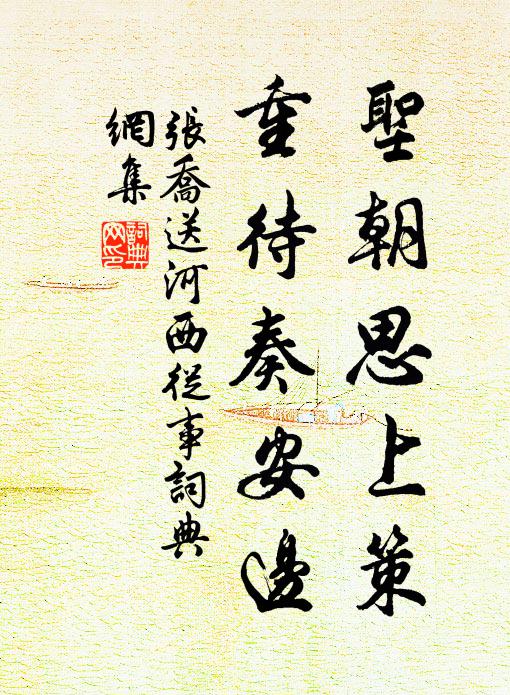 聖朝思上策
重待奏安邊
張喬送河西從事詞典
網集
詞典
网印